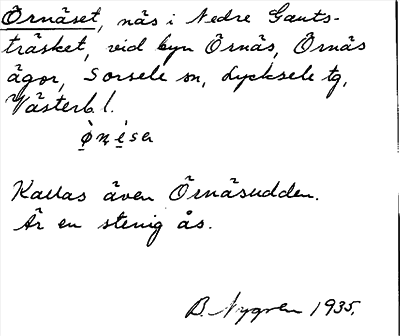 Örnäset, näs i Nedre Gauts-
träsket, vid byn Örnäs, Örnäs
ägor, Sorsele sn, Lycksele tg,
Västerb. l.
Kallas även Örnäsudden.
Är en stenig ås.
B. Nygren 1935.